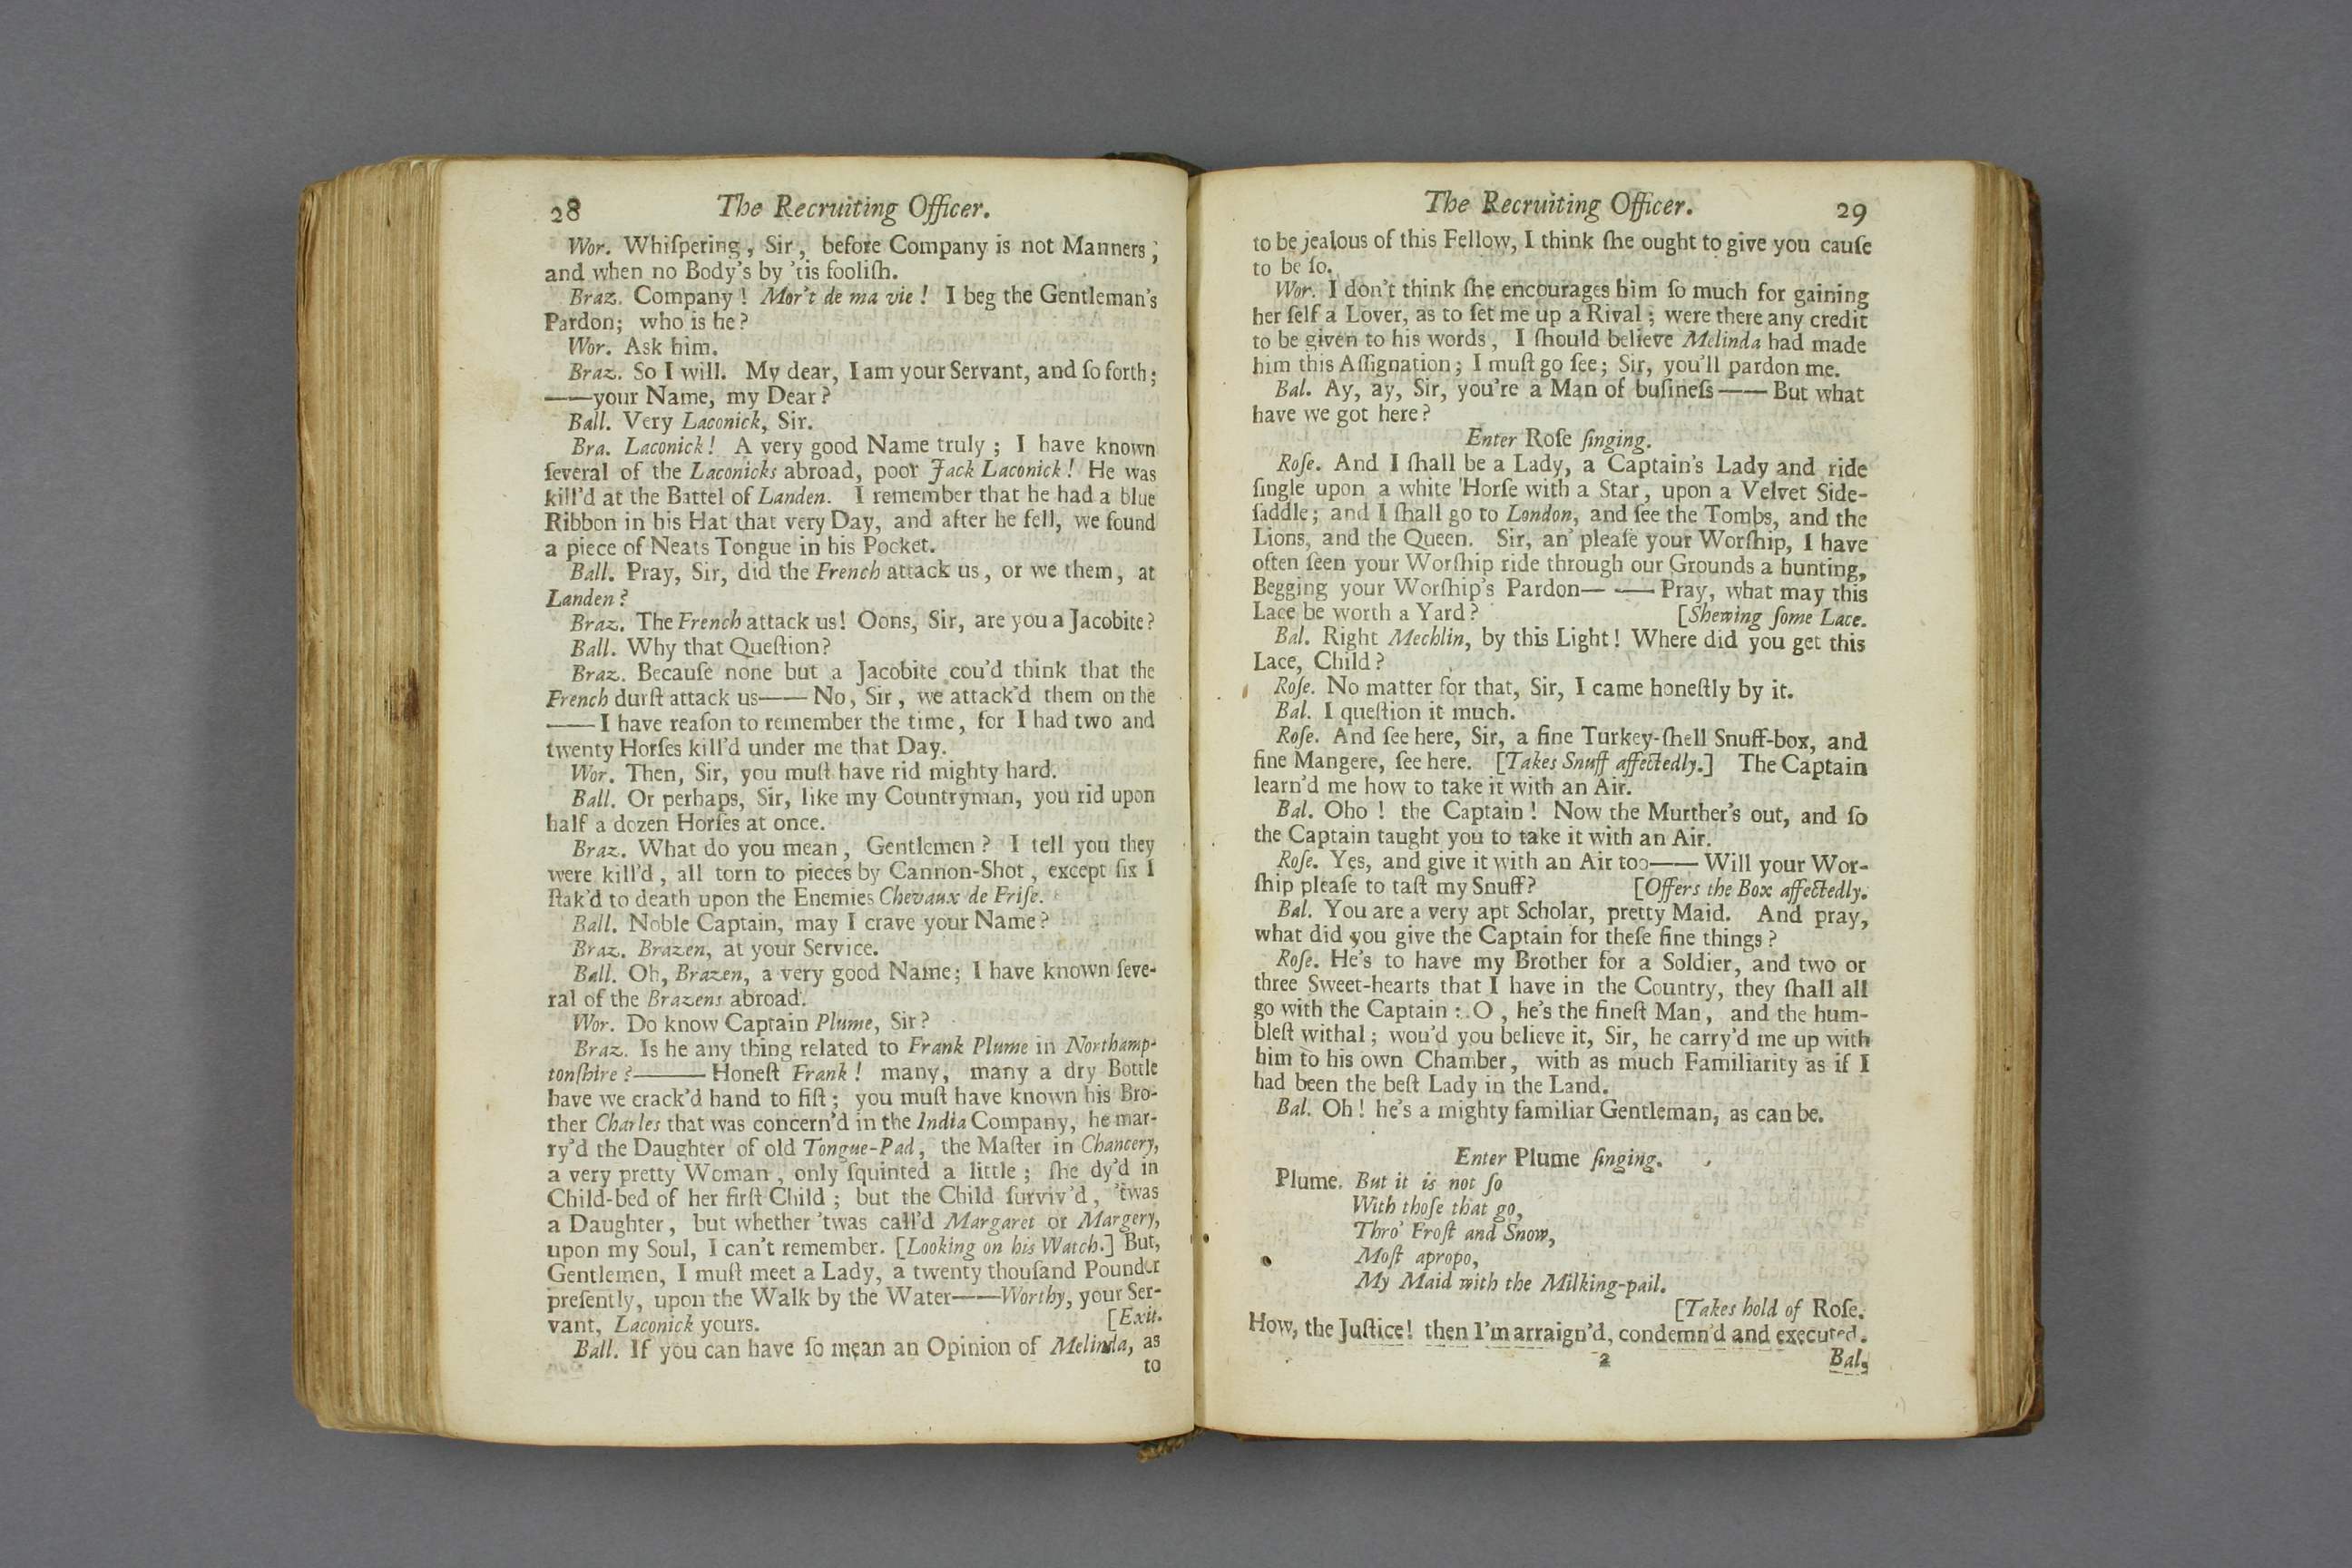 28 The Recruiting Officer.
Wor. Whiſpering, Sir, before Company is not Manners;
and when no Body's by 'tis fooliſh.
Braz. Company! Mor't de ma vie! I beg the Gentleman's
Pardon; who is he?
Wor. Ask him.
Braz. So I will. My dear, I am your Servant, and ſo forth;
——your Name, my Dear?
Ball. Very Laconick, Sir.
Bra. Laconick! A very good Name truly; I have known
ſeveral of the Laconicks abroad, poor Jack Laconick! He was
kill'd at the Battel of Landen. I remember that he had a blue
Ribbon in his Hat that very Day, and after he fell, we found
a piece of Neats Tongue in his Pocket.
Ball. Pray, Sir, did the French attack us, or we them, at
Landen?
Braz. The French attack us! Oons, Sir, are you a Jacobite?
Ball. Why that Queſtion?
Braz. Becauſe none but a Jacobite cou'd think that the
French durſt attack us—— No, Sir, we attack'd them on the
——I have reaſon to remember the time, for I had two and
twenty Horſes kill'd under me that Day.
Wor. Then, Sir, you muſt have rid mighty hard.
Ball. Or perhaps, Sir, like my Countryman, you rid upon
half a dozen Horſes at once.
Braz. What do you mean, Gentlemen? I tell you they
were kill'd, all torn to pieces by Cannon-Shot, except ſix I
ſtak'd to death upon the Enemies Chevaux de Friſe.
Ball. Noble Captain, may I crave your Name?
Braz. Brazen, at your Service.
Ball. Oh, Brazen, a very good Name; I have known ſeve-
ral of the Brazens abroad.
Wor. Do know Captain Plume, Sir?
Braz. Is he any thing related to Frank Plume in Northamp-
tonſhire?——— Honeſt Frank! many, many a dry Bottle
have we crack'd hand to fiſt; you muſt have known his Bro-
ther Charles that was concern'd in the India Company, he mar-
ry'd the Daughter of old Tongue-Pad, the Maſter in Chancery,
a very pretty Woman, only ſquinted a little; ſhe dy'd in
Child-bed of her firſt Child; but the Child ſurviv'd, 'twas
a Daughter, but whether 'twas call'd Margaret or Margery,
upon my Soul, I can't remember. [Looking on his Watch.] But,
Gentlemen, I muſt meet a Lady, a twenty thouſand Pounder
preſently, upon the Walk by the Water——Worthy, your Ser-
vant, Laconick yours. [Exit.
Ball. If you can have ſo mean an Opinion of Melinda, as
to
The Recruiting Officer. 29
to be jealous of this Fellow, I think ſhe ought to give you cauſe
to be ſo.
Wor. I don't think ſhe encourages him ſo much for gaining
her ſelf a Lover, as to ſet me up a Rival; were there any credit
to be given to his words, I ſhould believe Melinda had made
him this Aſſignation; I muſt go ſee; Sir, you'll pardon me.
Bal. Ay, ay, Sir, you're a Man of buſineſs—— But what
have we got here?
Enter Roſe ſinging.
Roſe. And I ſhall be a Lady, a Captain's Lady and ride
ſingle upon a white 'Horſe with a Star, upon a Velvet Side-
ſaddle; and I ſhall go to London, and ſee the Tombs, and the
Lions, and the Queen. Sir, an' pleaſe your Worſhip, I have
often ſeen your Worſhip ride through our Grounds a hunting,
Begging your Worſhip's Pardon— —— Pray, what may this
Lace be worth a Yard? [Shewing ſome Lace.
Bal. Right Mechlin, by this Light! Where did you get this
Lace, Child?
Roſe. No matter for that, Sir, I came honeſtly by it.
Bal. I queſtion it much.
Roſe. And ſee here, Sir, a fine Turkey-ſhell Snuff-box, and
fine Mangere, ſee here. [Takes Snuff affectedly.] The Captain
learn'd me how to take it with an Air.
Bal. Oho! the Captain! Now the Murther's out, and ſo
the Captain taught you to take it with an Air.
Roſe. Yes, and give it with an Air too—— Will your Wor-
ſhip pleaſe to taſt my Snuff? [Offers the Box affectedly.
Bal. You are a very apt Scholar, pretty Maid. And pray,
what did you give the Captain for theſe fine things?
Roſe. He's to have my Brother for a Soldier, and two or
three Sweet-hearts that I have in the Country, they ſhall all
go with the Captain: O, he's the fineſt Man, and the hum-
bleſt withal; wou'd you believe it, Sir, he carry'd me up with
him to his own Chamber, with as much Familiarity as if I
had been the beſt Lady in the Land.
Bal. Oh! he's a mighty familiar Gentleman, as can be.
Enter Plume ſinging.
Plume. But it is not ſo
With thoſe that go,
Thro' Froſt and Snow,
Moſt apropo,
My Maid with the Milking-pail.
[Takes hold of Roſe.
How, the Juſtice! then I'm arraign'd, condemn'd and executed.
2 Bal.